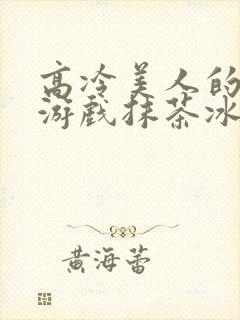 高冷美人的
游戏抹茶冰
黄海蕾